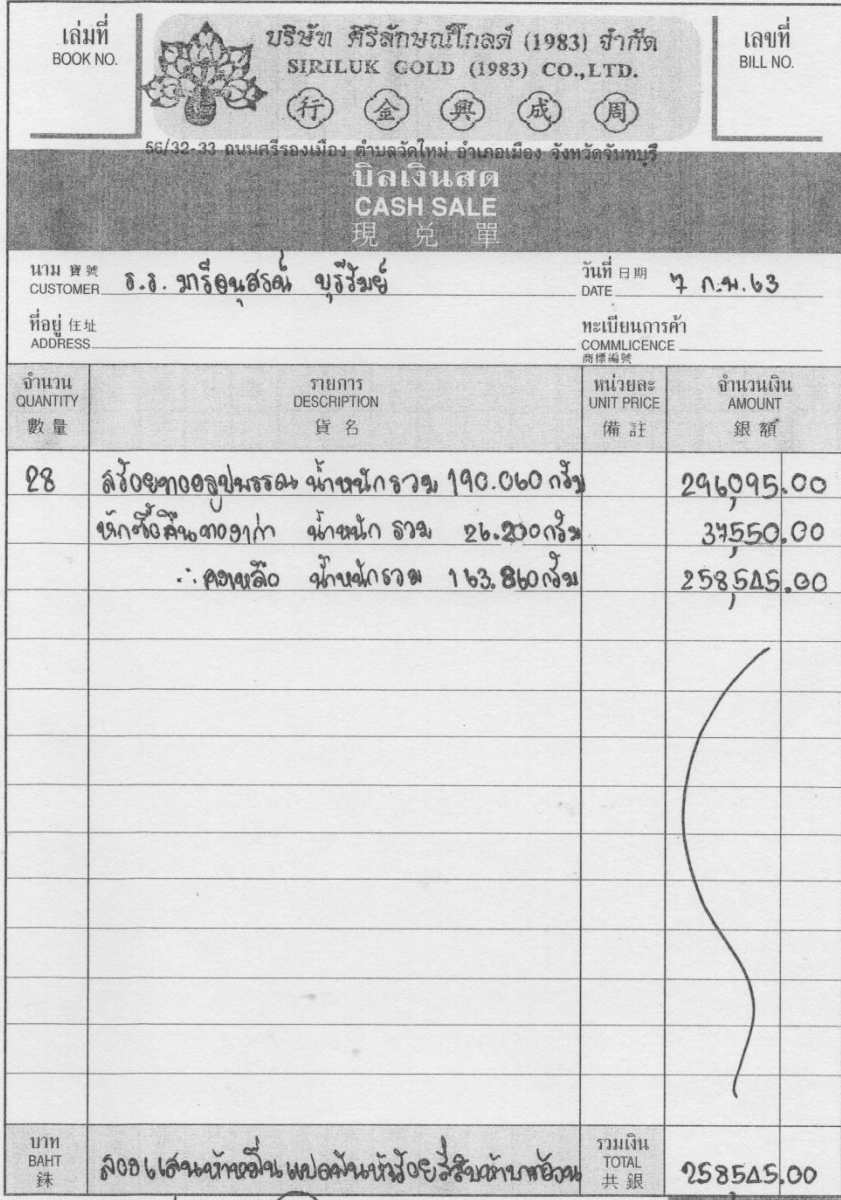 เล่มที่
BOOK NO.
บริษัท ศิริลักษณ์โกลด์ (1983) จำกัด
SIRILUK GOLD (1983) CO.,LTD.
行 金 興 成 周
เลขที่
BILL NO.
56/32-33 ถนนศรีรองเมือง ตำบลวัดใหม่ อำเภอเมือง จังหวัดจันทบุรี
บิลเงินสด
CASH SALE
現 兌 單
นาม 寶號 ร.ร. มารีอนุสรณ์ บุรีรัมย์
CUSTOMER
วันที่ 日期 7 ก.พ. 63
DATE
ที่อยู่ 住址
ADDRESS
ทะเบียนการค้า
COMMLICENCE
商標編號
จำนวน รายการ หน่วยละ จำนวนเงิน
QUANTITY DESCRIPTION UNIT PRICE AMOUNT
數量 貨名 備註 銀額
28 สร้อยทองรูปพรรณ น้ำหนักรวม 190.060 กรัม 296,095.00
หักซื้อคืนทองเก่า น้ำหนัก รวม 26.200 กรัม 37,550.00
∴ คงเหลือ น้ำหนักรวม 163.860 กรัม 258,545.00
บาท
BAHT
銖
สองแสนห้าหมื่นแปดพันห้าร้อยสี่สิบห้าบาทถ้วน
รวมเงิน
TOTAL
共銀
258545.00